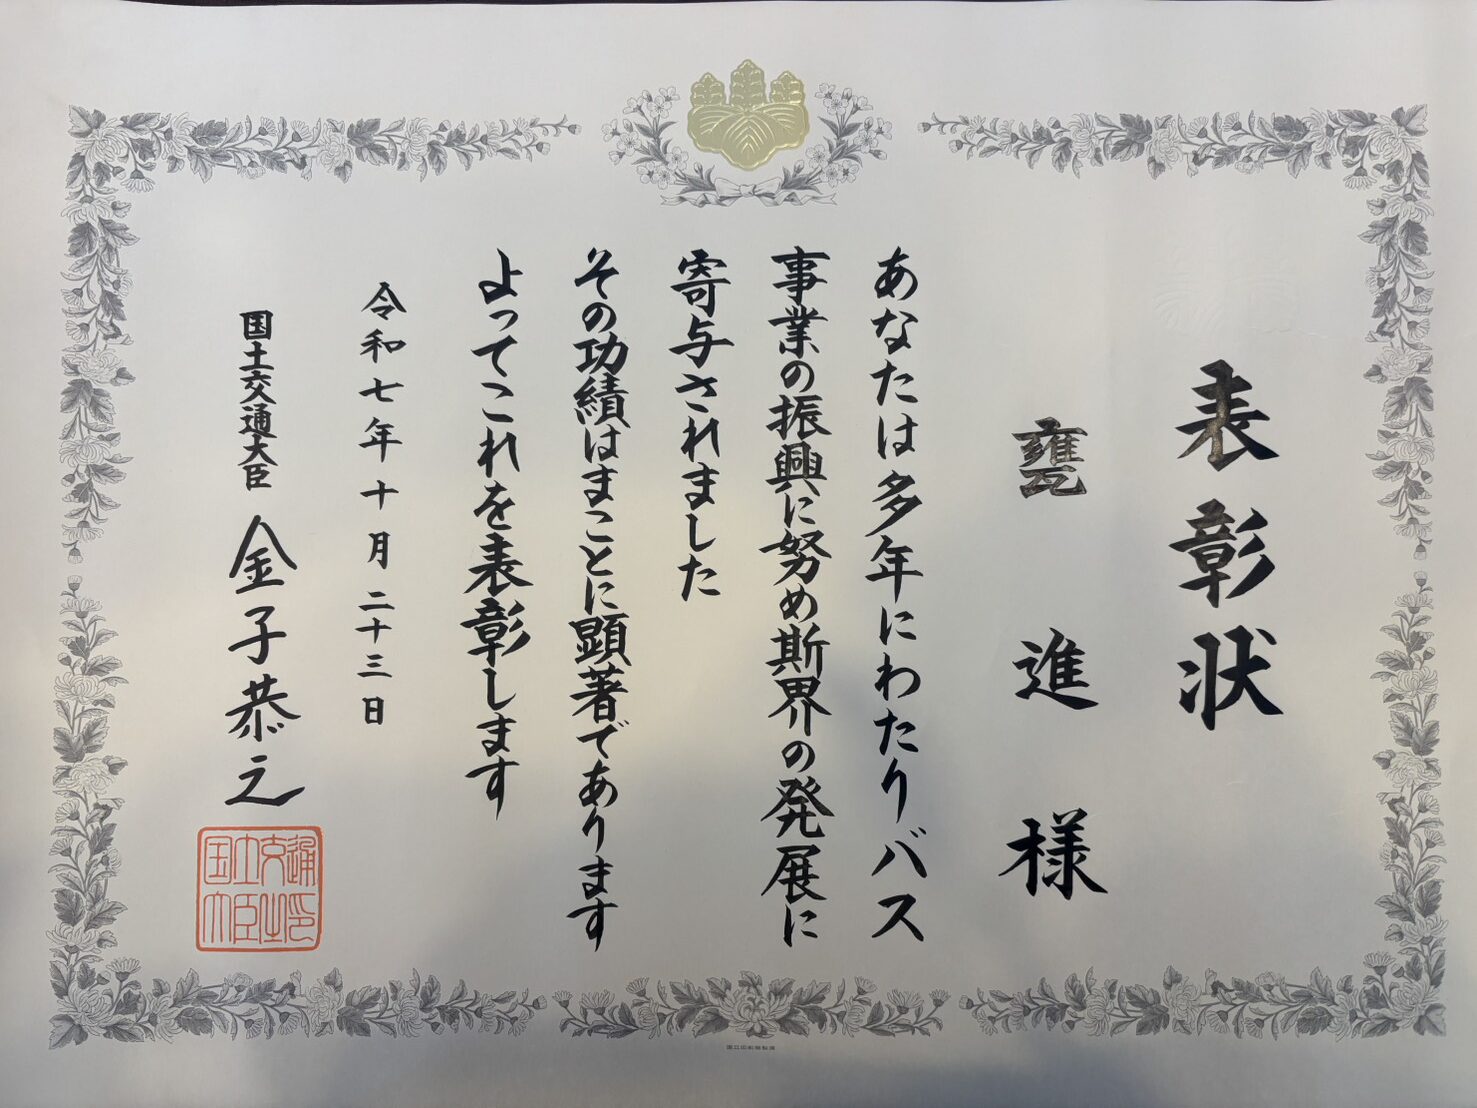 表彰状
甕進様
あなたは多年にわたりバス
事業の振興に努め斯界の発展に
寄与されました
その功績はまことに顕著であります
よってこれを表彰します
令和七年十月二十三日
国土交通大臣 金子恭之
国土交通大臣之印
国立印刷局製造